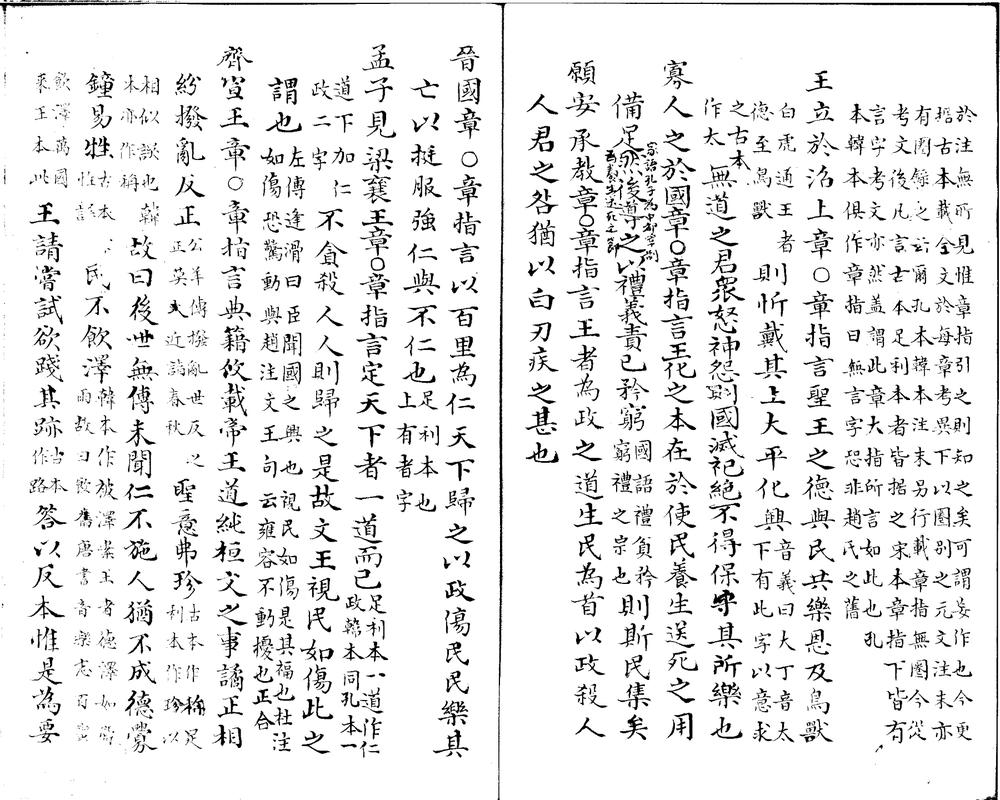 於注無所見惟章指引之則知之矣可謂妄作也今更
据古本載全文於每章考異下以圈別之元文注末亦
有圈錄之云爾孔本韓本注末另行載章指無圈今從
考文後凡言古本足利本者皆据之宋本章指下皆有
言字考文亦然盖謂此章大指所言如此也孔
本韓本俱作章指曰無言字恐非趙氏之舊
王立於沼上章○章指言聖王之德與民共樂恩及鳥獸
白虎通王者
德至鳥獸
則忻戴其上大平化興
音義曰大丁音太
下有此字以意求
之古本
作太
無道之君衆怒神怨則國滅祀絶不得保守其所樂也
寡人之於國章○章指言王化之本在於使民養生送死之用
備足然後導之以禮義責己矜窮
國語禮貧矜
窮禮之宗也
則斯民集矣
願安承教章○章指言王者為政之道生民為首以政殺人
人君之咎猶以白刃疾之甚也
晉國章○章指言以百里為仁天下歸之以政傷民民樂其
亡以挺服強仁與不仁也
足利本也
上有者字
孟子見梁襄王章○章指言定天下者一道而已
足利本一道作仁
政韓本同孔本一
道下加仁
政二字
不貪殺人人則歸之是故文王視民如傷此之
謂也
左傳逢滑曰臣聞國之興也視民如傷是其福也杜注
如傷恐驚動與趙注文王句云雍容不動擾也正合
齊宣王章○章指言典籍攸載帝王道純桓文之事譎正相
紛撥亂反正
公羊傳撥亂世反之
正莫近諸春秋
聖意弗珍
古本作稱足
利本作珍以
相似誤也韓
本亦作稱
故曰後世無傳未聞仁不施人猶不成德釁
鐘易牲
民不飲澤
韓本作被澤案王者德澤如
雨故曰飲舊唐書音樂志百
飲澤萬國
來王本此
王請嘗試欲踐其跡
古本
作路
答以反本惟是為要